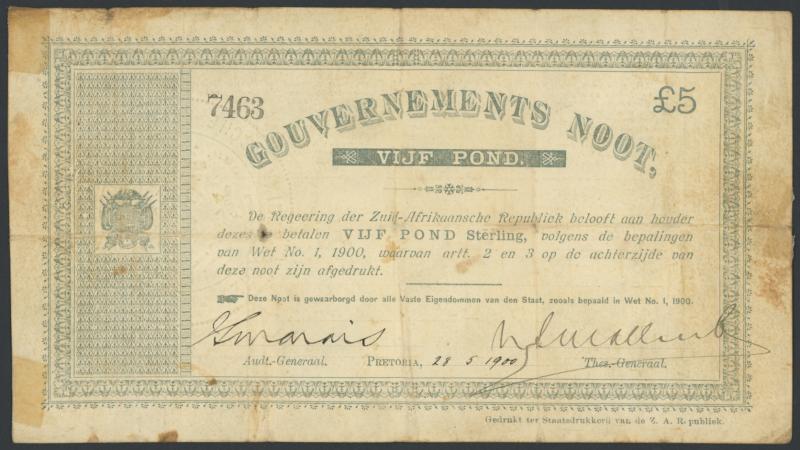 7463
£5
GOUVERNEMENTS NOOT,
VIJF POND.
De Regeering der Zuid-Afrikaansche Republiek belooft aan houder
dezes te betalen VIJF POND Sterling, volgens de bepalingen
van Wet No. 1, 1900, waarvan artt. 2 en 3 op de achterzijde van
deze noot zijn afgedrukt.
Deze Noot is gewaarborgd door alle Vaste Eigendommen van den Staat, zooals bepaald in Wet No. 1, 1900.
Audt.-Generaal. PRETORIA, 28 5 1900 Thes.-Generaal.
Gedrukt ter Staatsdrukkerij van de Z. A. Republiek.